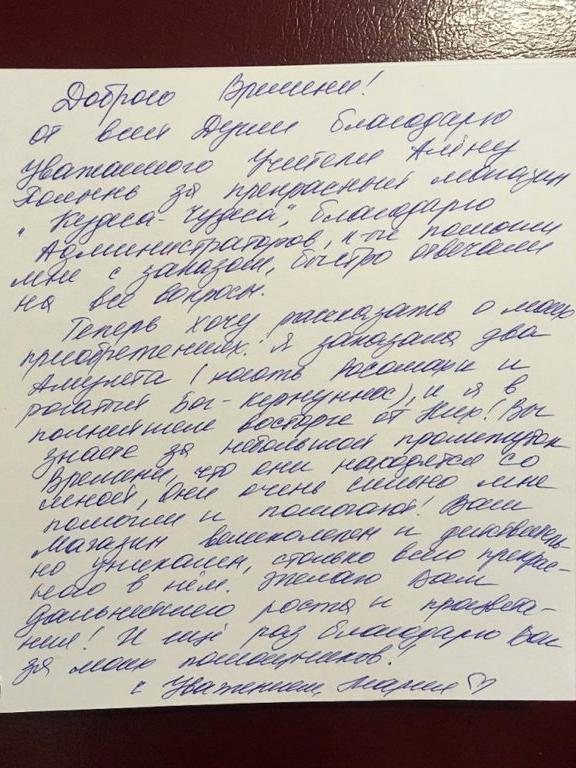 Доброго Времени!
от всей Души благодарю
Уважаемого Учителя Алёну
Полынь за прекрасный магазин
"Кудеса-Чудеса", благодарю
Администраторов, к-ые помогли
мне с заказом, быстро отвечали
на все вопросы.
Теперь хочу рассказать о моих
приобретениях. Я заказала два
Амулета (коготь Росомахи и
рогатый Бог-Кернуннос), и я в
полнейшем восторге от Них! Вы
знаете за небольшой промежуток
Времени, что они находятся со
мной, Они очень сильно мне
помогли и помогают! Ваш
магазин великолепен и действитель-
но уникален, столько всего прекрас-
ного в нём. Желаю Вам
дальнейшего роста и процвета-
ния! И ещё раз благодарю Вас
за моих помощников!
с Уважением, Мария ♡